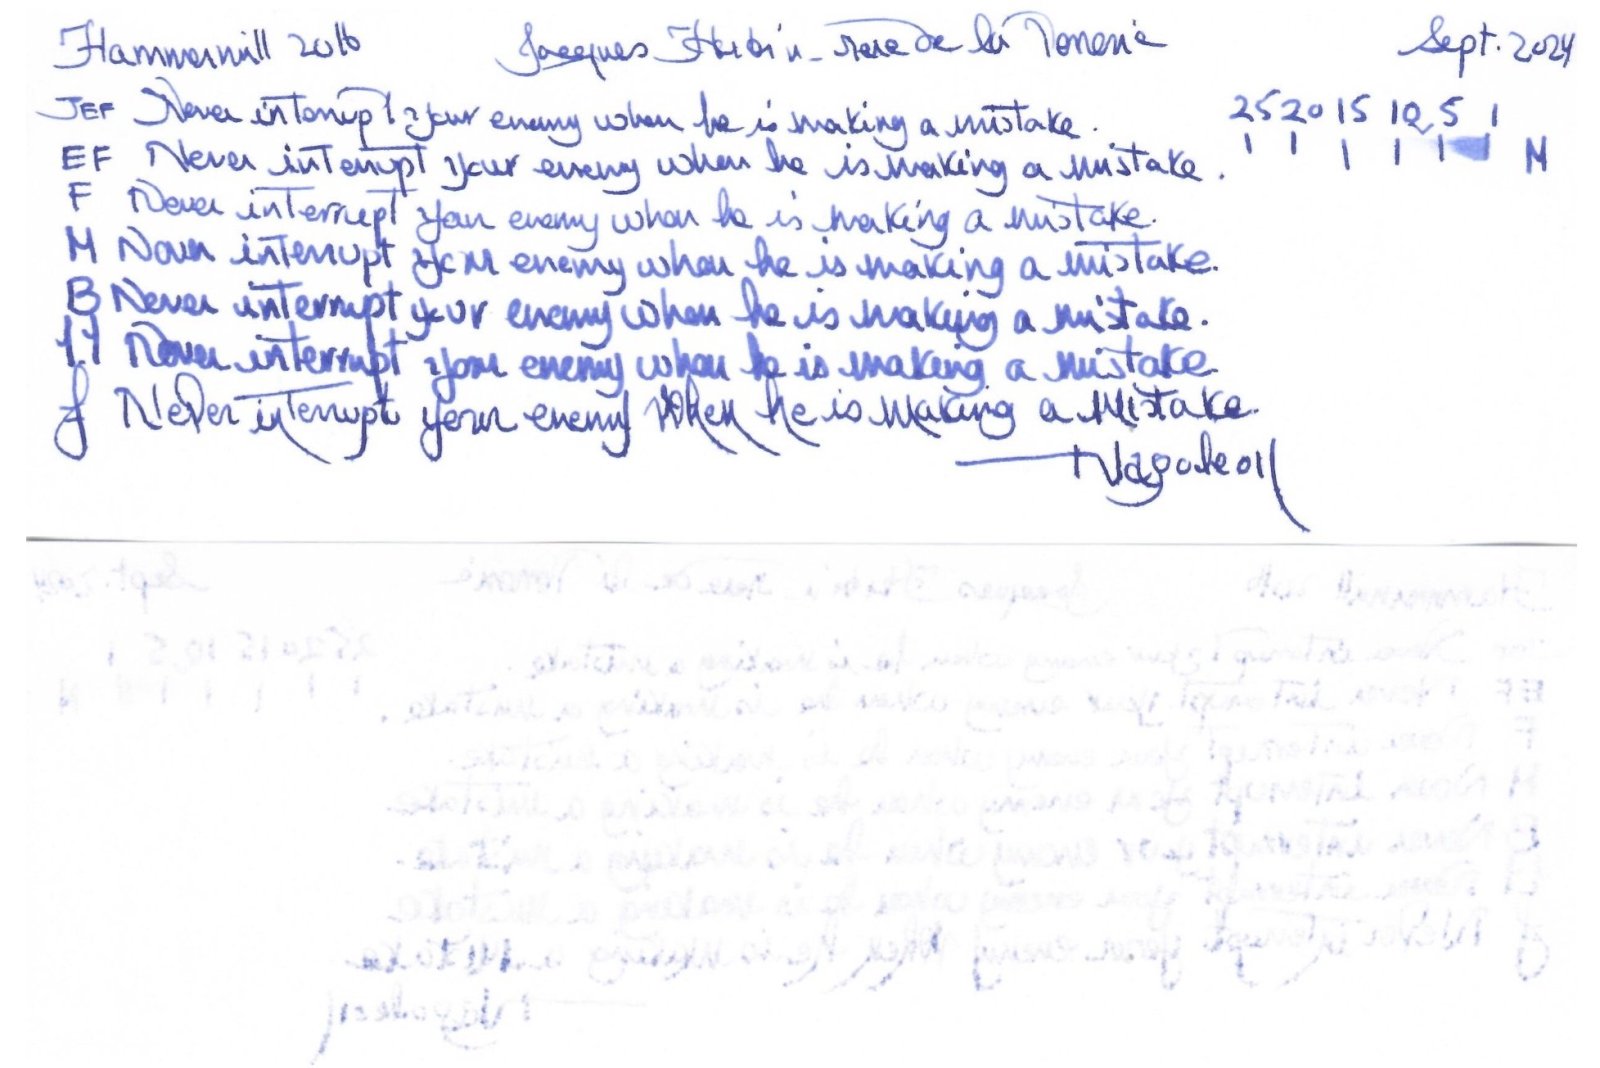 Hammermill 20lb Jacques Herbin - rue de la Sept. 2024
JEF Never interrupt your enemy when he is making a mistake. 25 20 15 10 5 1
EF Never interrupt your enemy when he is making a mistake. M
F Never interrupt your enemy when he is making a mistake.
M Never interrupt your enemy when he is making a mistake.
B Never interrupt your enemy when he is making a mistake.
1.1 Never interrupt your enemy when he is making a mistake
f Never interrupt your enemy when he is making a mistake.
Napoleon